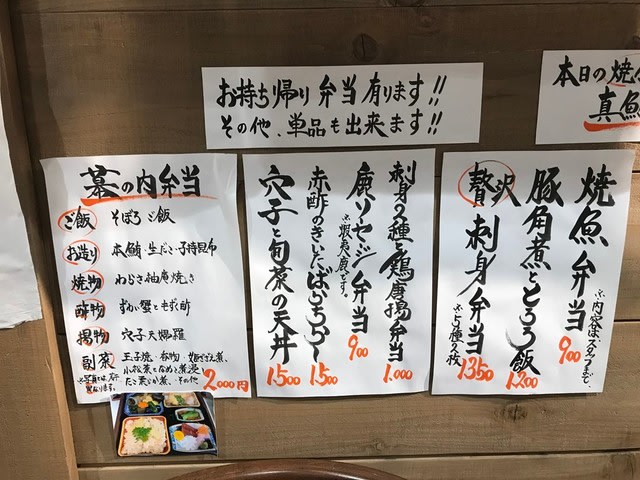 お持ち帰り弁当有ります!!
その他、単品も出来ます!!
本日の焼
真魚
幕の内弁当
ご飯 そぼろご飯
お造り 本鮪・生だこ・子持昆布
焼物 わらさ柚庵焼き
酢物 ずわい蟹ともずく酢
揚物 穴子天婦羅
副菜 玉子焼・
小松菜となめこ煮浸
たこ
その他
2,000円
刺身2種と鶏唐揚弁当 1,000
鹿ソーセージ弁当 900
※蝦夷鹿です。
赤酢のきいたばらちらし 1500
穴子と旬菜の天丼 1500
焼魚弁当 900
※内容はスタッフまで、
豚角煮ととろろ飯 1200
贅沢刺身弁当 1350
※5種2枚